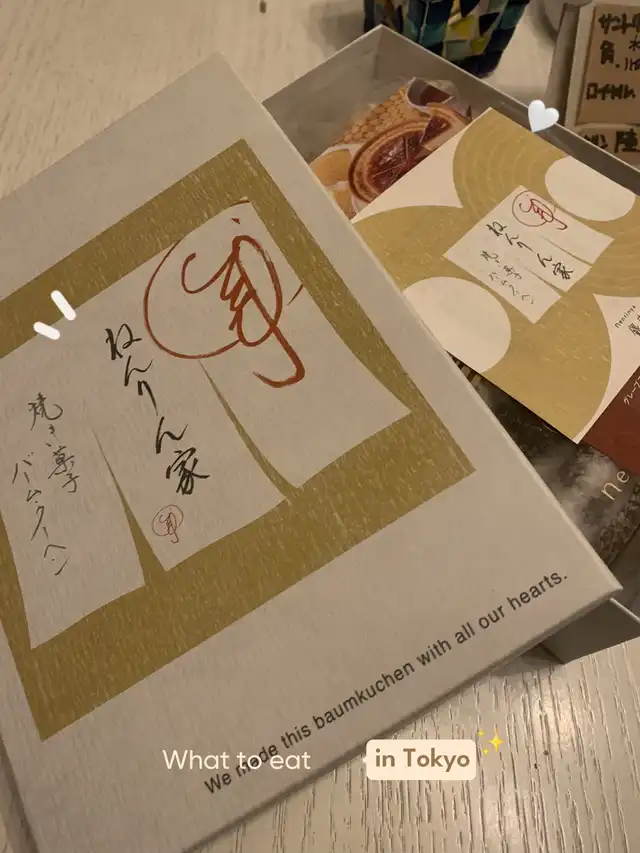 ねんりん家
焼き菓子
バームクーヘン
We made this baumkuchen with all our hearts.
ねんりん家
焼き菓子
バームクーヘン
nenrinya
ne
What to eat
in Tokyo